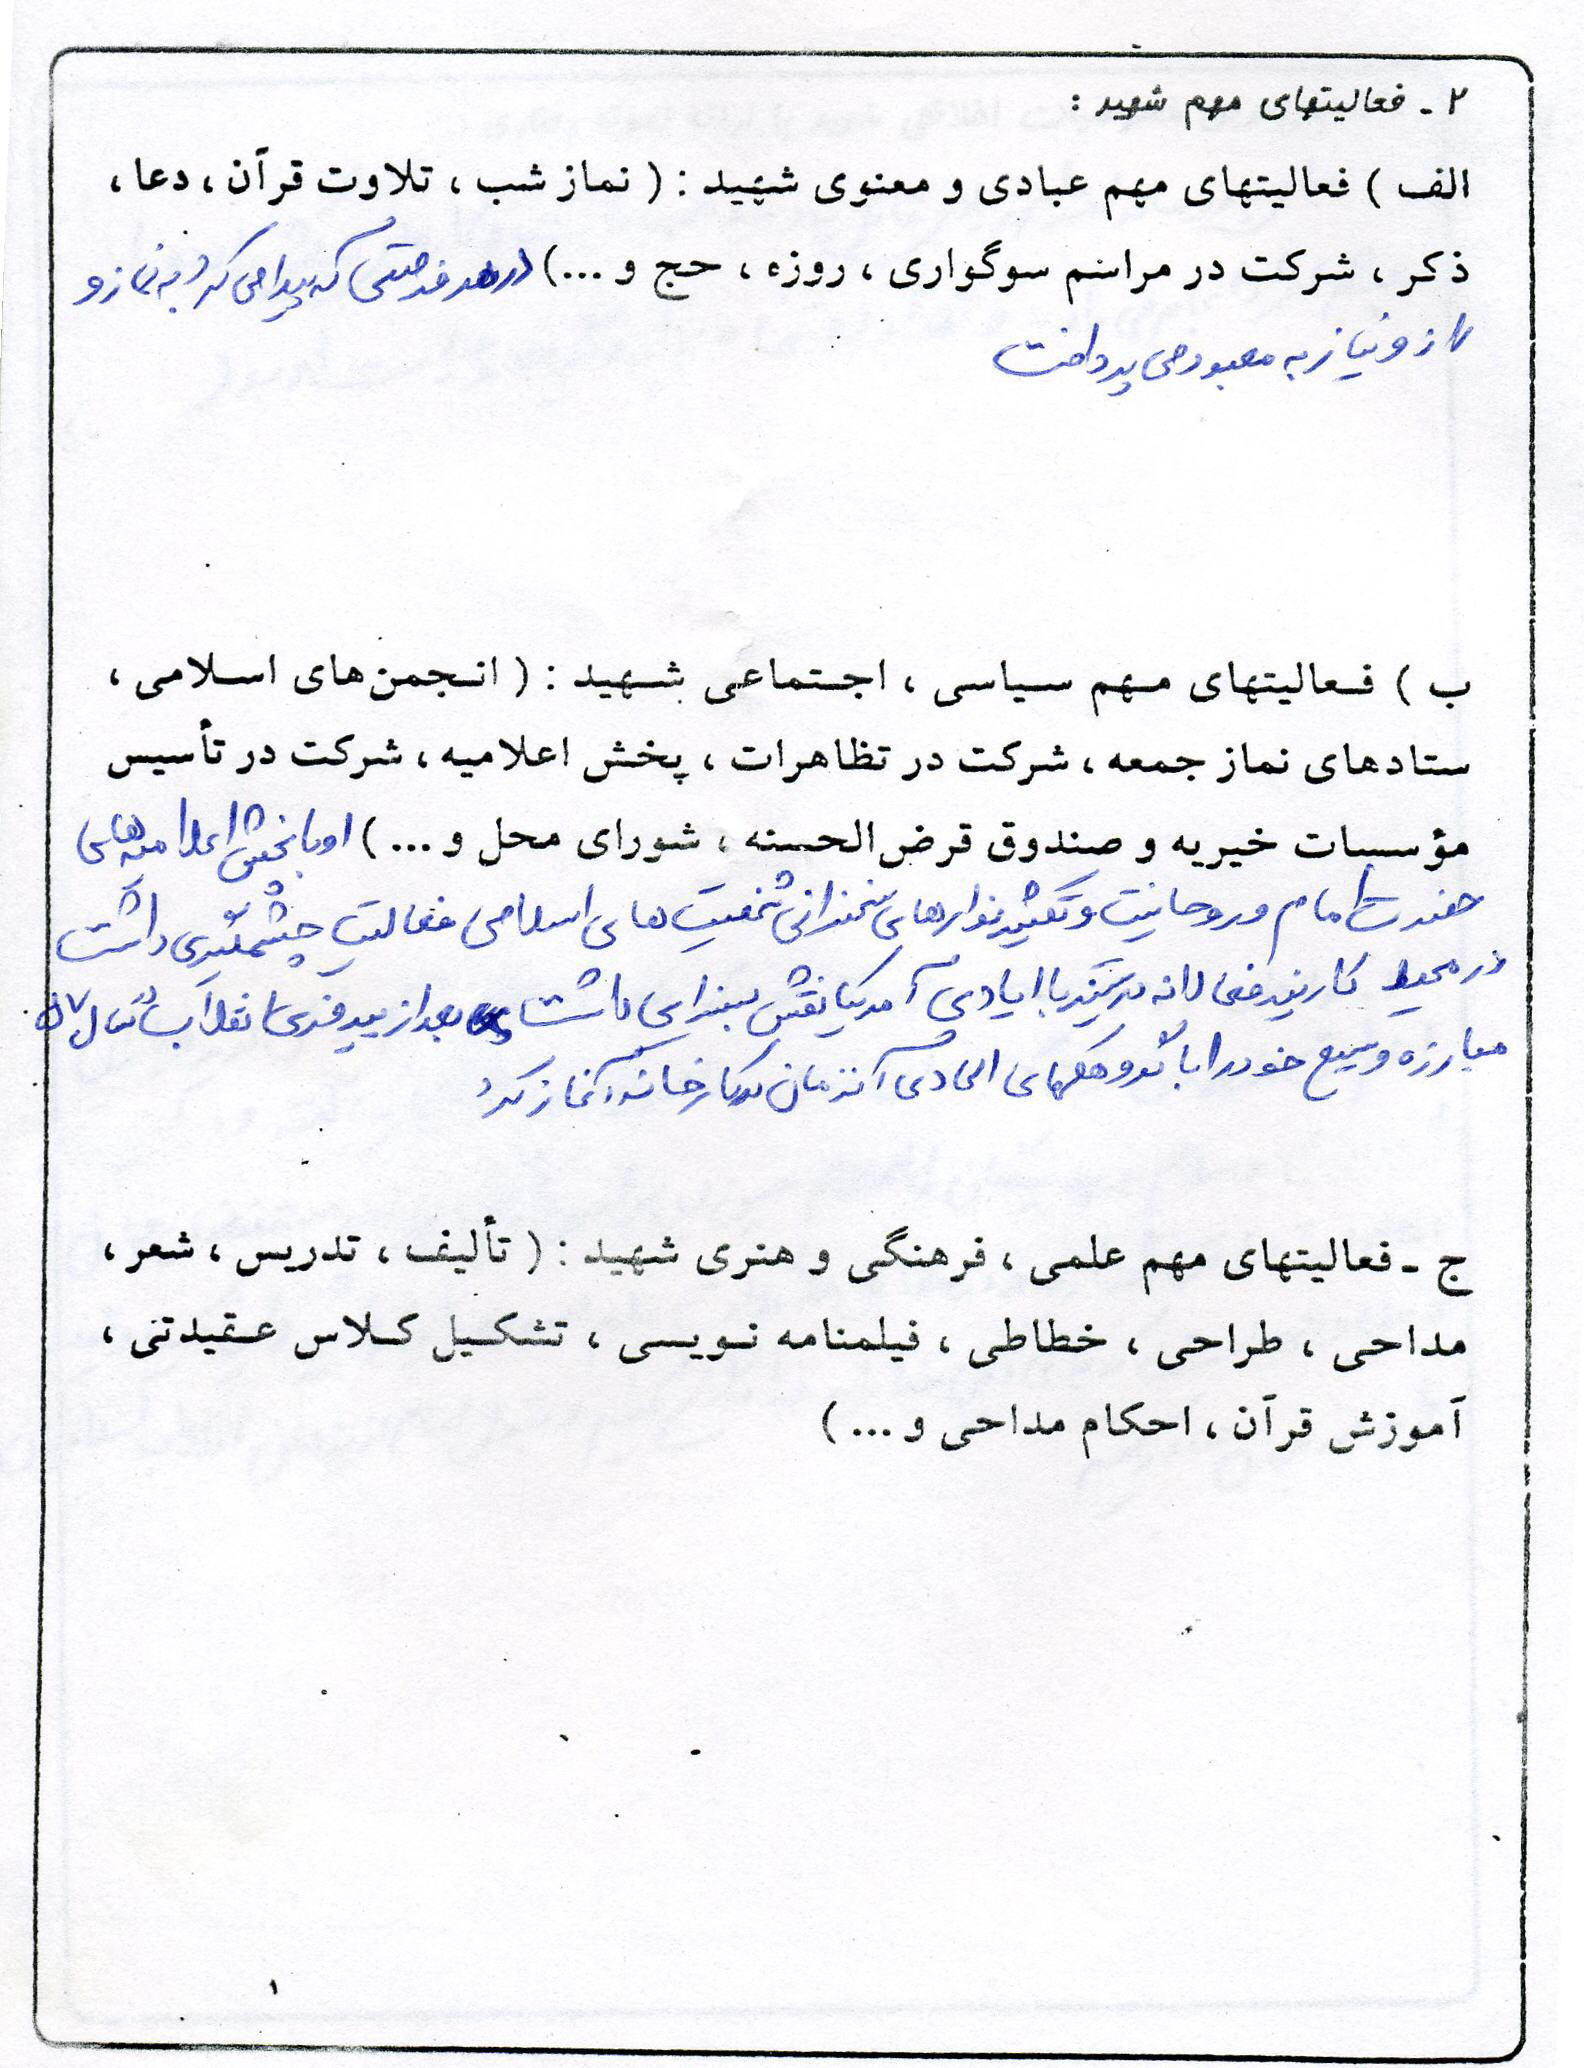 ۲ ـ فعالیتهای مهم شهید :
الف ) فعالیتهای مهم عبادی و معنوی شهید : ( نماز شب ، تلاوت قرآن ، دعا ،
ذکر ، شرکت در مراسم سوگواری ، روزه ، حج و ...) در هر فرصتی که پیدا می کرد به نماز و
راز و نیاز به معبود می پرداخت
ب ) فعالیتهای مهم سیاسی ، اجتماعی شهید : ( انجمن‌های اسلامی ،
ستادهای نماز جمعه ، شرکت در تظاهرات ، پخش اعلامیه ، شرکت در تأسیس
مؤسسات خیریه و صندوق قرض‌الحسنه ، شورای محل و ... ) او با پخش اعلامیه های
حضرت امام و روحانیت و تکثیر نوارهای سخنرانی شخصیت های اسلامی فعالیت چشمگیری داشت
در محیط کار نیز فعالانه در ستیز با ایادی آمریکا نقش بسزایی داشت بعد از پیروزی انقلاب در سال ۵۷
مبارزه وسیع خود را با گروهکهای الحادی آنزمان در کارخانه آغاز کرد
ج ـ فعالیتهای مهم علمی ، فرهنگی و هنری شهید : ( تألیف ، تدریس ، شعر ،
مداحی ، طراحی ، خطاطی ، فیلمنامه نویسی ، تشکیل کلاس عقیدتی ،
آموزش قرآن ، احکام مداحی و ... )
۱